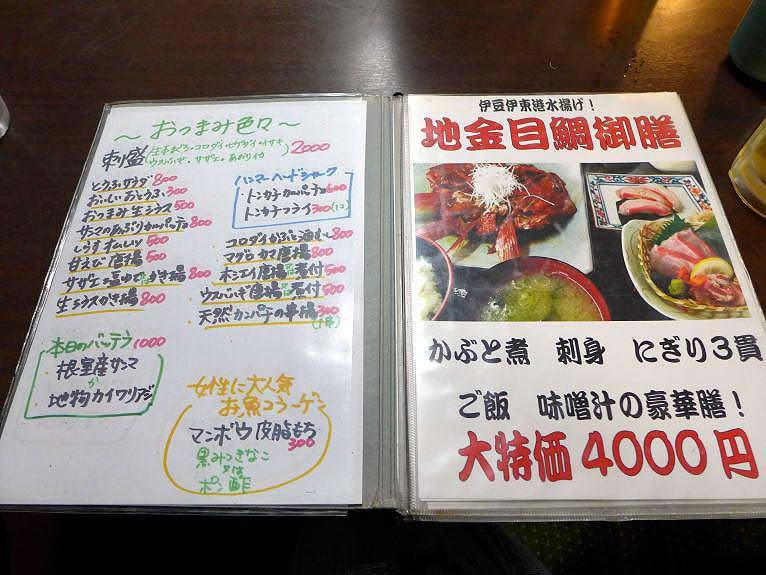 ～おつまみ色々～
刺盛(生本まぐろ、コロダイ、ヒラダイ、イサキ
ウスバハギ、サザエ、あおりイカ)2000
とうふサラダ 800
おいしいおとうふ 300
おつまみ生シラス 500
サンマのあぶりカルパッチョ 800
しらすオムレツ 500
甘えび唐揚 500
サザエの塩ゆでかき揚 800
生シラスかき揚 800
ハンマーヘッドシャーク
・トンカチカルパッチョ600
・トンカチフライ300(1コ)
コロダイかぶと酒むし800
マグロカマ唐揚 800
ホシエイ唐揚 煮付 500
ウスバハギ唐揚 煮付 500
天然カンパチの串揚300
(1本)
本日のバッテラ 1000
根室産サンマ
か
地物カイワリアジ
女性に大人気
お魚コラーゲン
マンボウ皮脂もち
300
黒みつきなこ
又は
ポン酢
伊豆伊東港水揚げ！
地金目鯛御膳
かぶと煮 刺身 にぎり３貫
ご飯 味噌汁の豪華膳！
大特価４０００円